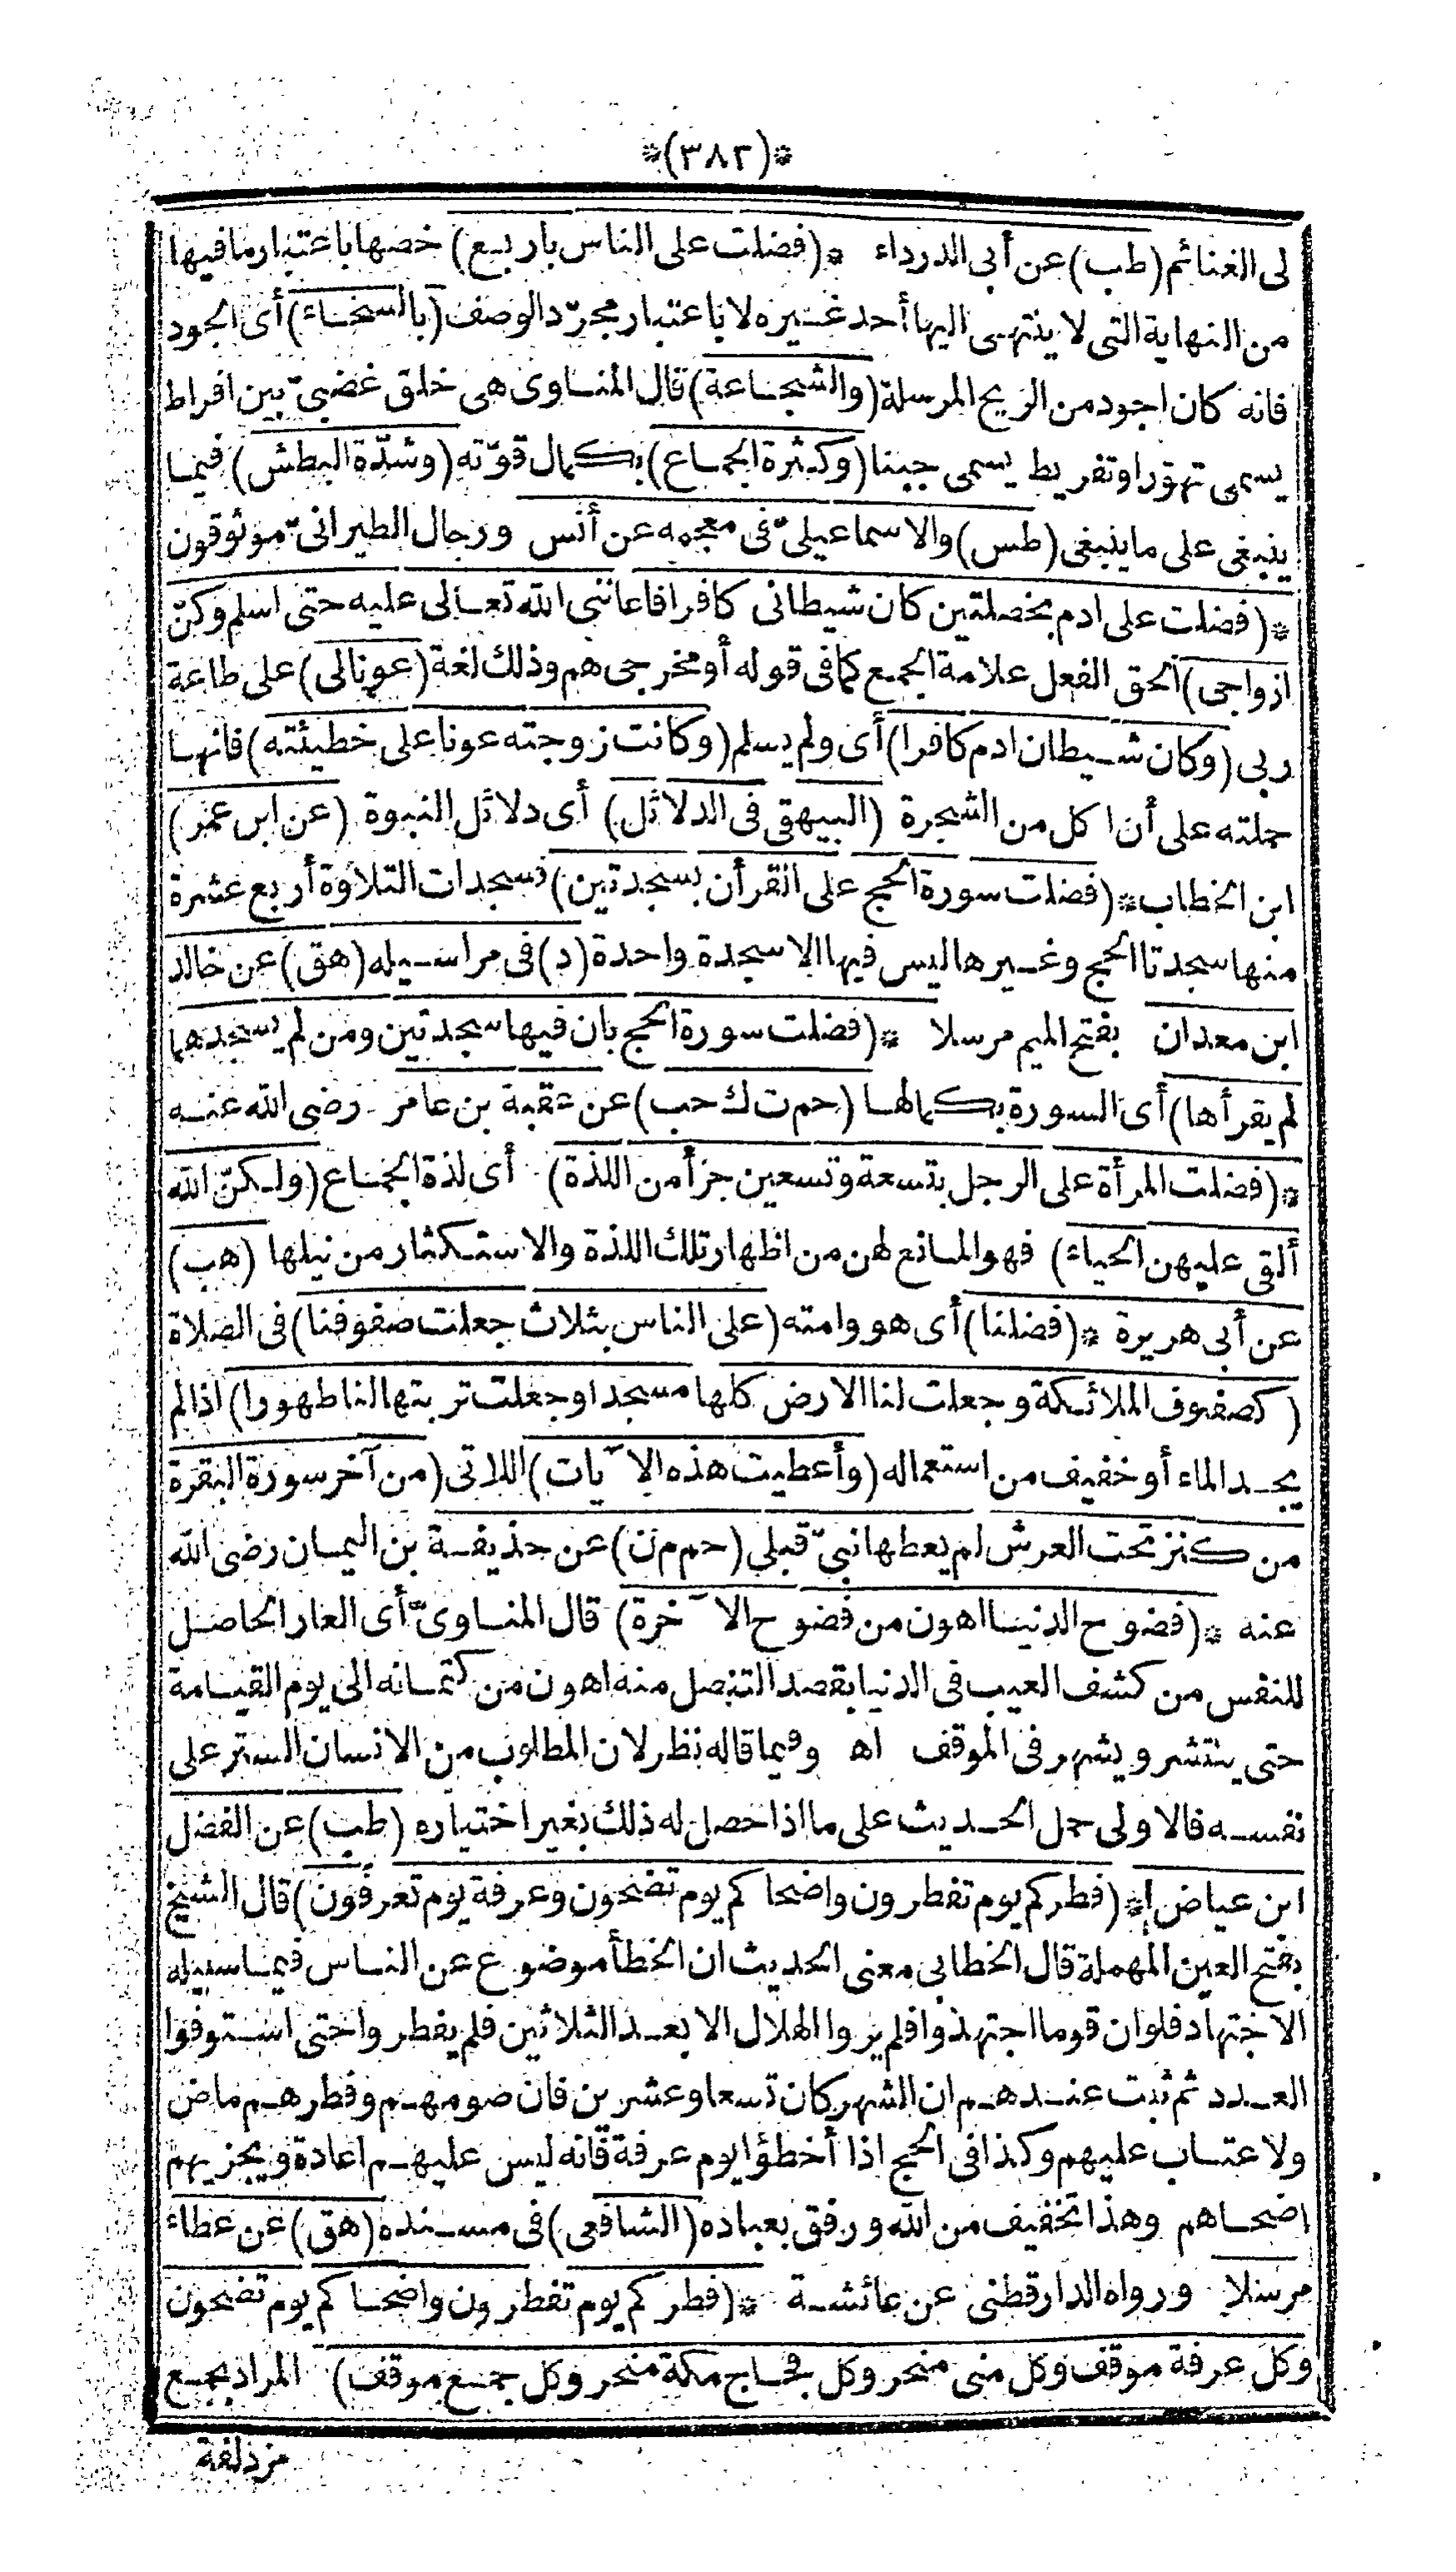 *(٣٨٢)*
لى الغنائم (طب) عن أبى الدرداء * (فضلت على الناس باربع) خصها باعتبار ما فيها
من النهاية التى لا ينتهى اليها أحد غيره لا باعتبار مجرّد الوصف (بالسخاء) أى الجود
فانه كان اجود من الريح المرسلة (والشجاعة) قال المناوى هى خلق غضبىّ بين افراط
يسمى تهوّرا وتفريط يسمى جبنا (وكثرة الجماع) بكمال قوّته (وشدّة البطش) فيما
ينبغى على ما ينبغى (طس) والاسماعيلىّ فى معجمه عن أنس ورجال الطبرانىّ موثوقون
*(فضلت على ادم بخصلتين كان شيطانى كافرا فاعاننى الله تعالى عليه حتى اسلم وكنّ
ازواجى) ألحق الفعل علامة الجمع كما فى قوله أو مخرجى هم وذلك لغة (عونا لى) على طاعة
ربى (وكان شيطان ادم كافرا) أى ولم يسلم (وكانت زوجته عونا على خطيئته) فانها
حملته على أن اكل من الشجرة (البيهقى فى الدلائل) أى دلائل النبوة (عن ابن عمر)
ابن الخطاب * (فضلت سورة الحج على القرأن بسجدتين) فسجدات التلاوة أربع عشرة
منها سجدتا الحج وغيرها ليس فيها الا سجدة واحدة (د) فى مراسيله (هق) عن خالد
ابن معدان بفتح الميم مرسلا * (فضلت سورة الحج بان فيها سجدتين ومن لم يسجدهما
لم يقرأها) أى السورة بكمالها (حم ت ك حب) عن عقبة بن عامر رضى الله عنه
*(فضلت المرأة على الرجل بتسعة وتسعين جزأ من اللذة) أى لذة الجماع (ولكنّ الله
ألقى عليهن الحياء) فهو المانع لهن من اظهار تلك اللذة والاستكثار من نيلها (هب)
عن أبى هريرة * (فضلنا) أى هو وامته (على الناس بثلاث جعلت صفوفنا) فى الصلاة
(كصفوف الملائكة وجعلت لنا الارض كلها مسجدا وجعلت تربتها لنا طهورا) اذا لم
يجد الماء أو خفيف من استعماله (وأعطيت هذه الآيات) اللاتى (من آخر سورة البقرة
من كنز تحت العرش لم يعطها نبىّ قبلى (حم م ن) عن حذيفة بن اليمان رضى الله
عنه * (فضوح الدنيا اهون من فضوح الآخرة) قال المناوىّ أى العار الحاصل
للنفس من كشف العيب فى الدنيا بقصد التنصل منه اهون من كتمانه الى يوم القيامة
حتى ينتشر ويشهر فى الموقف اه وفيما قاله نظر لان المطلوب من الانسان الستر على
نفسه فالاولى حمل الحديث على ما اذا حصل له ذلك بغير اختياره (طب) عن الفضل
ابن عياض * (فطركم يوم تفطرون واضحاكم يوم تضحون وعرفة يوم تعرفون) قال الشيخ
بفتح العين المهملة قال الخطابى معنى الحديث ان الخطأ موضوع عن الناس فيما سبيله
الاجتهاد فلو ان قوما اجتهدوا فلم يروا الهلال الا بعد الثلاثين فلم يفطروا حتى استوفوا
العدد ثم ثبت عندهم ان الشهر كان تسعا وعشرين فان صومهم وفطرهم ماض
ولا عتاب عليهم وكذا فى الحج اذا أخطؤا يوم عرفة فانه ليس عليهم اعادة ويجزيهم
اضحاهم وهذا تخفيف من الله ورفق بعباده (الشافعى) فى مسنده (هق) عن عطاء
مرسلا ورواه الدارقطنى عن عائشة * (فطركم يوم تفطرون واضحاكم يوم تضحون
وكل عرفة موقف وكل منى منحر وكل فجاج مكة منحر وكل جمع موقف) المراد بجمع
مزدلفة